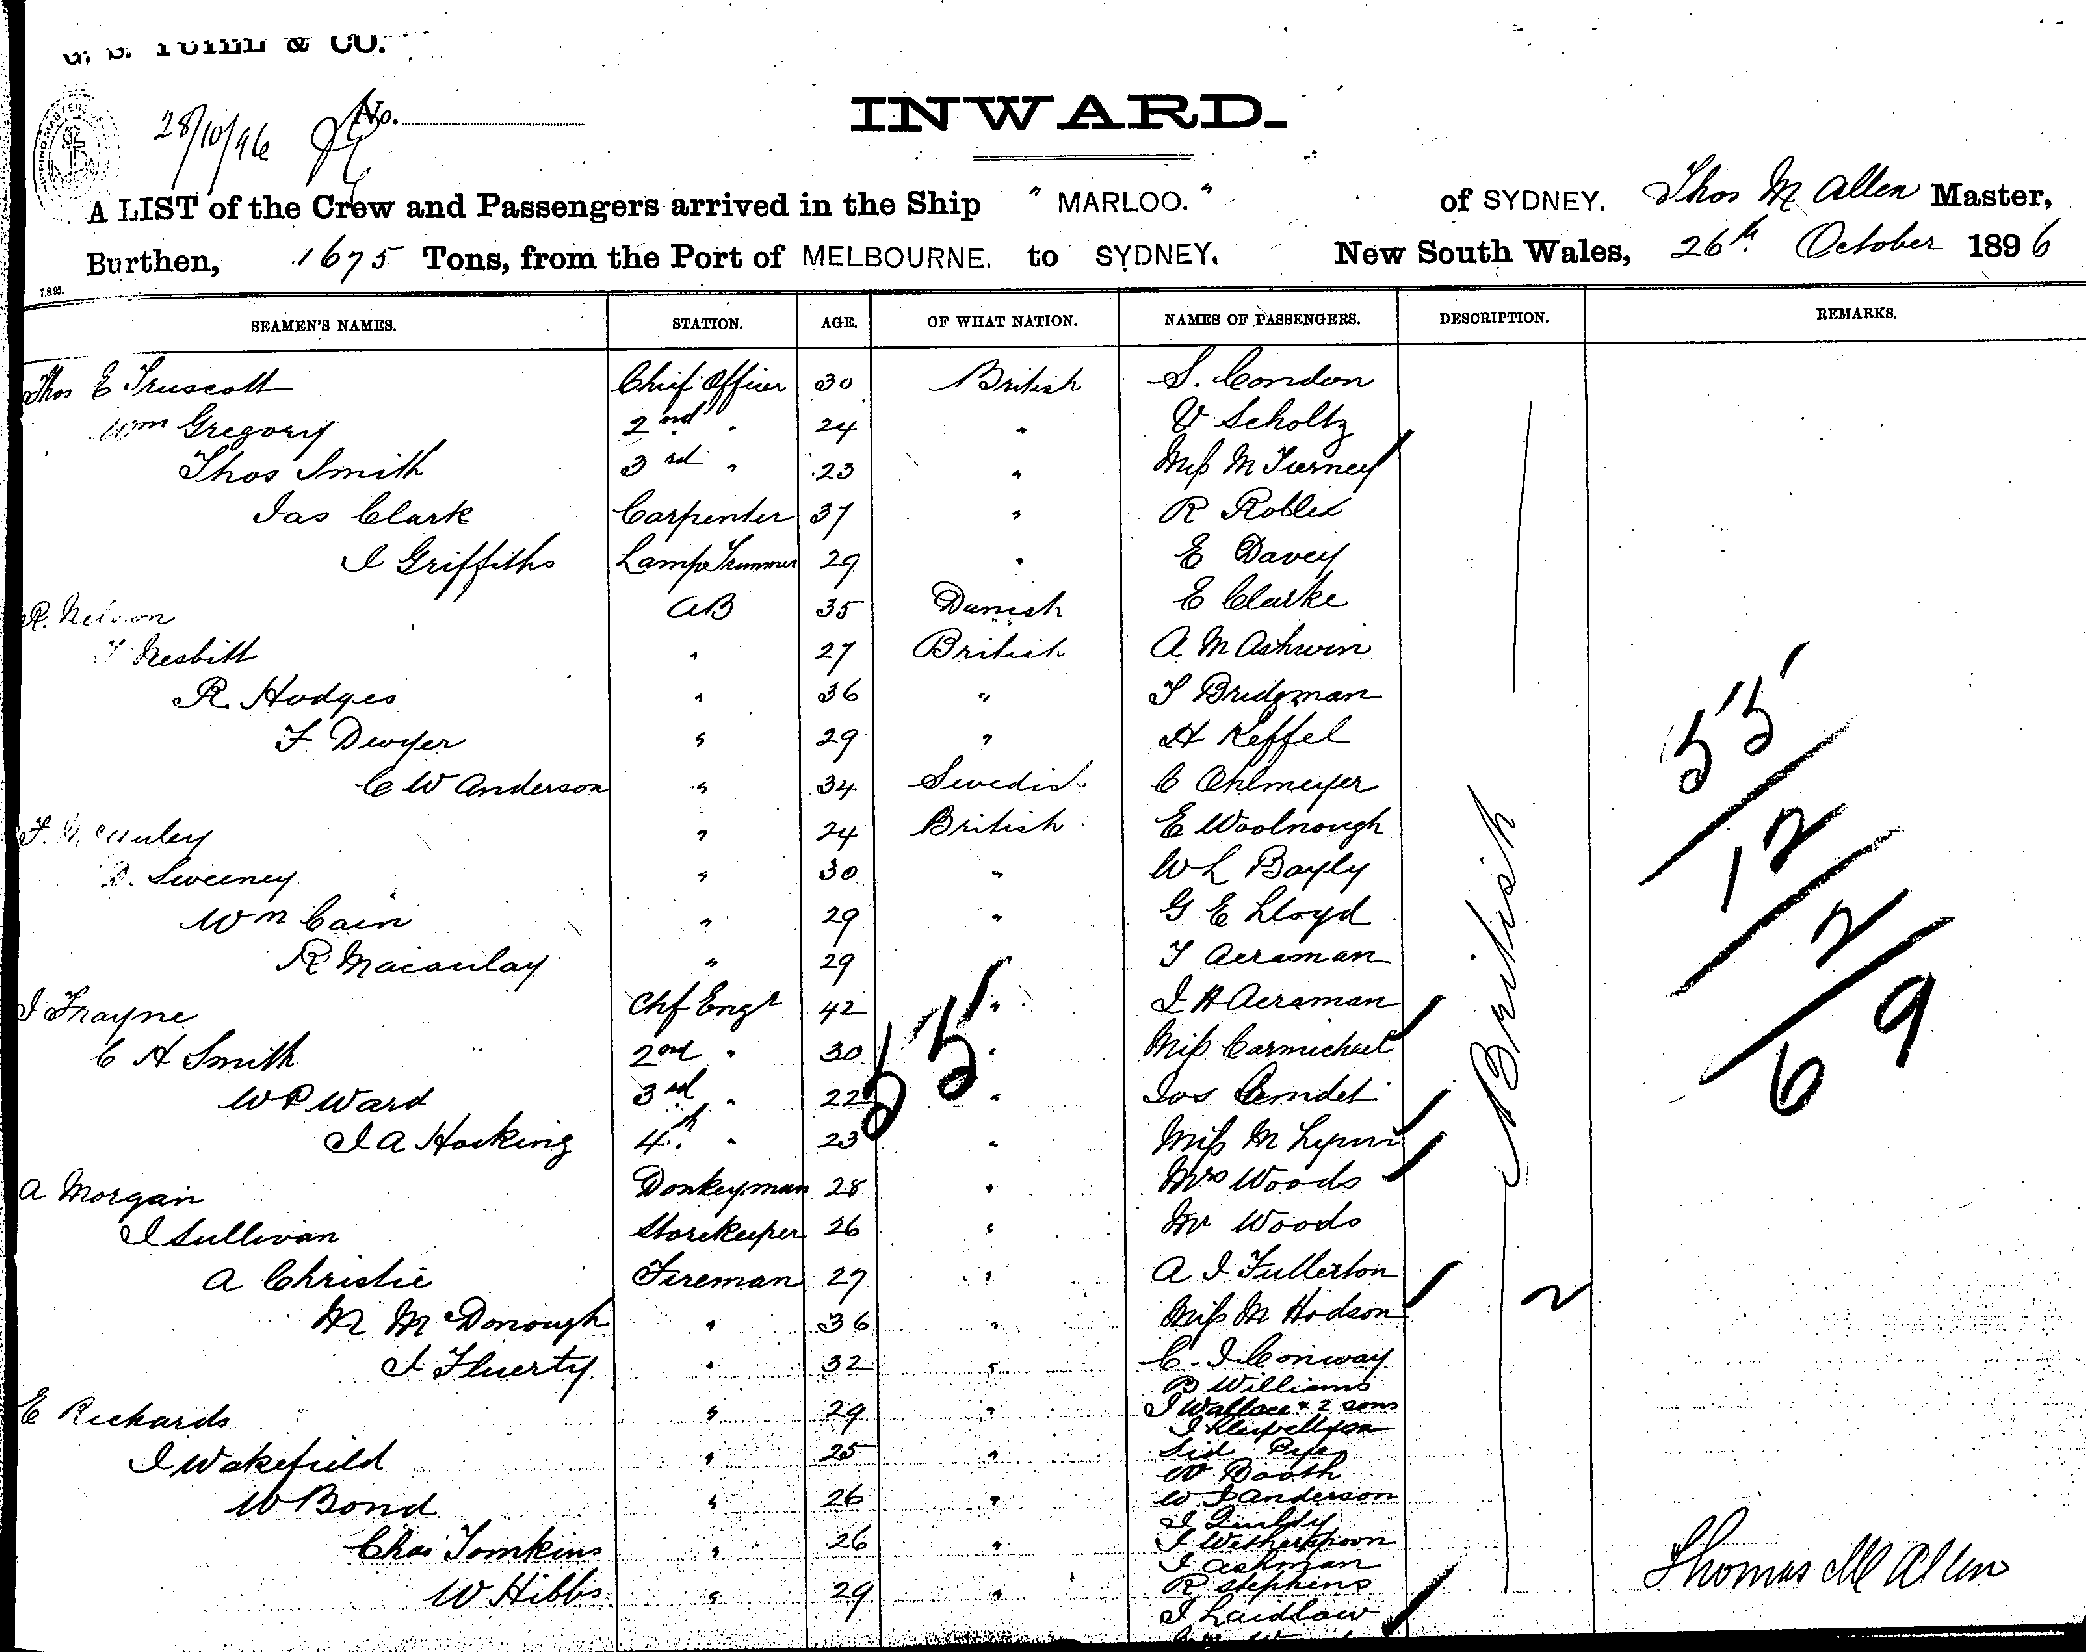 & CO.
28/10/96
No.
INWARD.
A LIST of the Crew and Passengers arrived in the Ship "MARLOO." of SYDNEY. Thos M Allen Master,
Burthen, 1675 Tons, from the Port of MELBOURNE. to SYDNEY. New South Wales, 26th October 1896
7.8.95.
SEAMEN'S NAMES. STATION. AGE. OF WHAT NATION. NAMES OF PASSENGERS. DESCRIPTION. REMARKS.
Thos E Truscott Chief Officer 30 British S. Condon
Wm Gregory 2nd " 24 " V Scholtz
Thos Smith 3rd " 23 " Miss M Tierney
Jas Clark Carpenter 37 " R Robles
J Griffiths Lamp Trimmer 29 " E Davey
R. Nelson AB 35 Danish E Clarke
T Nesbitt " 27 British A M Ashwin
R. Hodges " 36 " T Bridgman
F. Dwyer " 29 " H Keffel
C W Anderson " 34 Swedish C Ohlmeyer
F. " 24 British E Woolnough
Sweeney " 30 " W L Bayly
Wm Cain " 29 " G E Lloyd
R Macaulay " 29 " T Acraman
J Trayne Chf Engr 42 " J H Acraman
C H Smith 2nd " 30 " Miss Carmichael
W P Ward 3rd " 22 " Jos Arndet
J A Hocking 4th " 23 " Miss M Lynn
A Morgan Donkeyman 28 " Mrs Woods
J Sullivan Storekeeper 26 " Mr Woods
A Christie Fireman 27 " A J Fullerton
M McDonough " 36 " Miss M Hodson
J Fluerty " 32 " C. J Conway
B Williams
E Rickards " 29 " J Wallace & 2 sons
J Wakefield " 25 " Sid
W Booth
W Bond " 26 " W J Anderson
J
Chas Tomkins " 26 " J Witherspoon
J Ashman
W Hibbs " 29 " R Stephens
J Laidlaw
British
55
55
12
2
69
2
Thomas M Allen